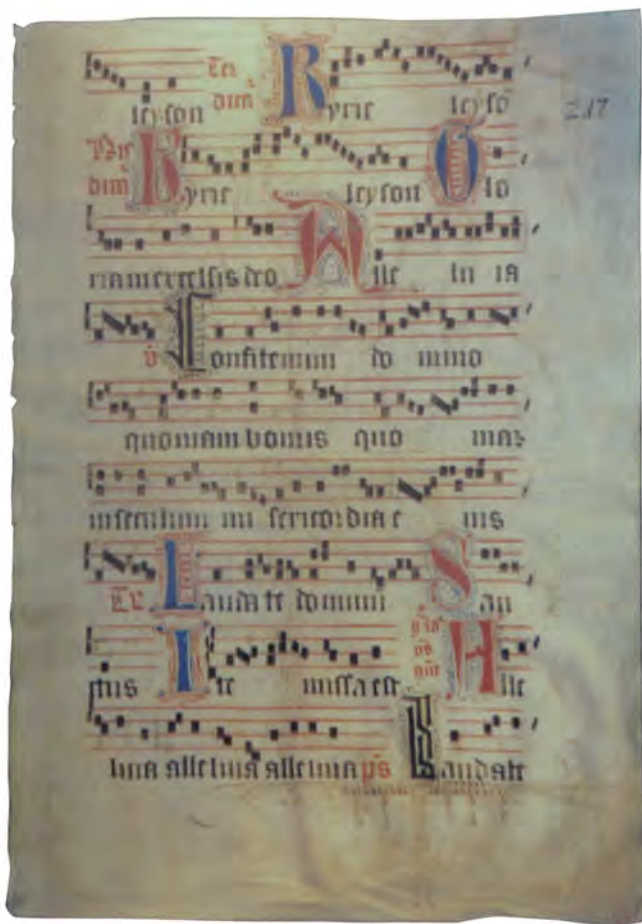 leyson Kyrie leyso 217
Kyrie leyson Glo
ria in excelsis deo Alle lu ia
Confitemini do mino
quoniam bonus quo niaz
inseculum mi sericordia e ius
Laudate dominum San
ctus Ite missa est Alle
luia alleluia alleluia ps Laudate